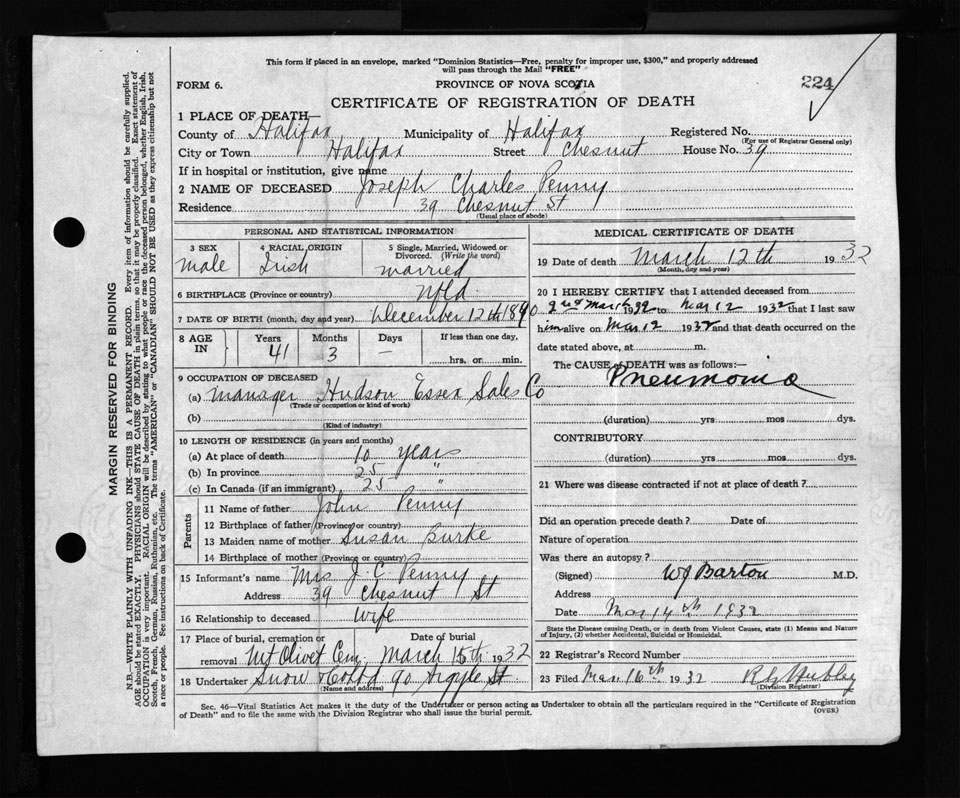 This form if placed in an envelope, marked "Dominion Statistics—Free, penalty for improper use, $300," and properly addressed
will pass through the Mail "FREE"
FORM 6.
PROVINCE OF NOVA SCOTIA
224
CERTIFICATE OF REGISTRATION OF DEATH
1 PLACE OF DEATH—
County of Halifax Municipality of Halifax Registered No.
(For use of Registrar General only)
City or Town Halifax Street Chesnut House No. 39
If in hospital or institution, give name
2 NAME OF DECEASED Joseph Charles Penny
Residence 39 Chesnut St
(Usual place of abode)
PERSONAL AND STATISTICAL INFORMATION
3 SEX 4 RACIAL ORIGIN 5 Single, Married, Widowed or Divorced. (Write the word)
male Irish married
6 BIRTHPLACE (Province or country) Nfld.
7 DATE OF BIRTH (month, day and year) December 12th 1890
8 AGE IN Years Months Days If less than one day,
41 3 —
hrs. or min.
9 OCCUPATION OF DECEASED
(a) Manager Hudson Essex Sales Co
(Trade or occupation or kind of work)
(b)
(Kind of industry)
10 LENGTH OF RESIDENCE (in years and months)
(a) At place of death 10 years
(b) In province 25 "
(c) In Canada (if an immigrant) 25 "
Parents
11 Name of father John Penny
12 Birthplace of father (Province or country)
13 Maiden name of mother Susan Burke
14 Birthplace of mother (Province or country)
15 Informant's name Mrs J. C. Penny
Address 39 Chesnut St
16 Relationship to deceased Wife
17 Place of burial, cremation or removal Date of burial
Mt Olivet Cem. March 15th 1932
18 Undertaker Snow & Co Ltd 90 Argyle St
(Name and address)
MEDICAL CERTIFICATE OF DEATH
19 Date of death March 12th 1932
(Month, day and year)
20 I HEREBY CERTIFY that I attended deceased from
2nd March 1932 to Mar 12 1932 that I last saw
him alive on Mar 12 1932 and that death occurred on the
date stated above, at m.
The CAUSE of DEATH was as follows:—
Pneumonia
(duration) yrs mos dys.
CONTRIBUTORY
(duration) yrs mos dys.
21 Where was disease contracted if not at place of death?
Did an operation precede death? Date of
Nature of operation
Was there an autopsy?
(Signed) WJ Barton M.D.
Address
Date Mar 14th 1932
State the Disease causing Death, or in death from Violent Causes, state (1) Means and Nature
of Injury, (2) whether Accidental, Suicidal or Homicidal.
22 Registrar's Record Number
23 Filed Mar. 16th 1932
(Division Registrar)
Sec. 46—Vital Statistics Act makes it the duty of the Undertaker or person acting as Undertaker to obtain all the particulars required in the "Certificate of Registration
of Death" and to file the same with the Division Registrar who shall issue the burial permit.
(OVER)
MARGIN RESERVED FOR BINDING
N.B.—WRITE PLAINLY WITH UNFADING INK—THIS IS A PERMANENT RECORD. Every item of information should be carefully supplied.
AGE should be stated EXACTLY. PHYSICIANS should STATE CAUSE OF DEATH in plain terms, so that it may be properly classified. Exact statement of
OCCUPATION is very important. RACIAL ORIGIN will be described by stating to what people or race the deceased person belonged, whether English, Irish,
Scotch, French, German, Russian, Ruthenian, etc. The terms "AMERICAN" or "CANADIAN" SHOULD NOT BE USED as they express citizenship but not
a race or people. See instructions on back of Certificate.